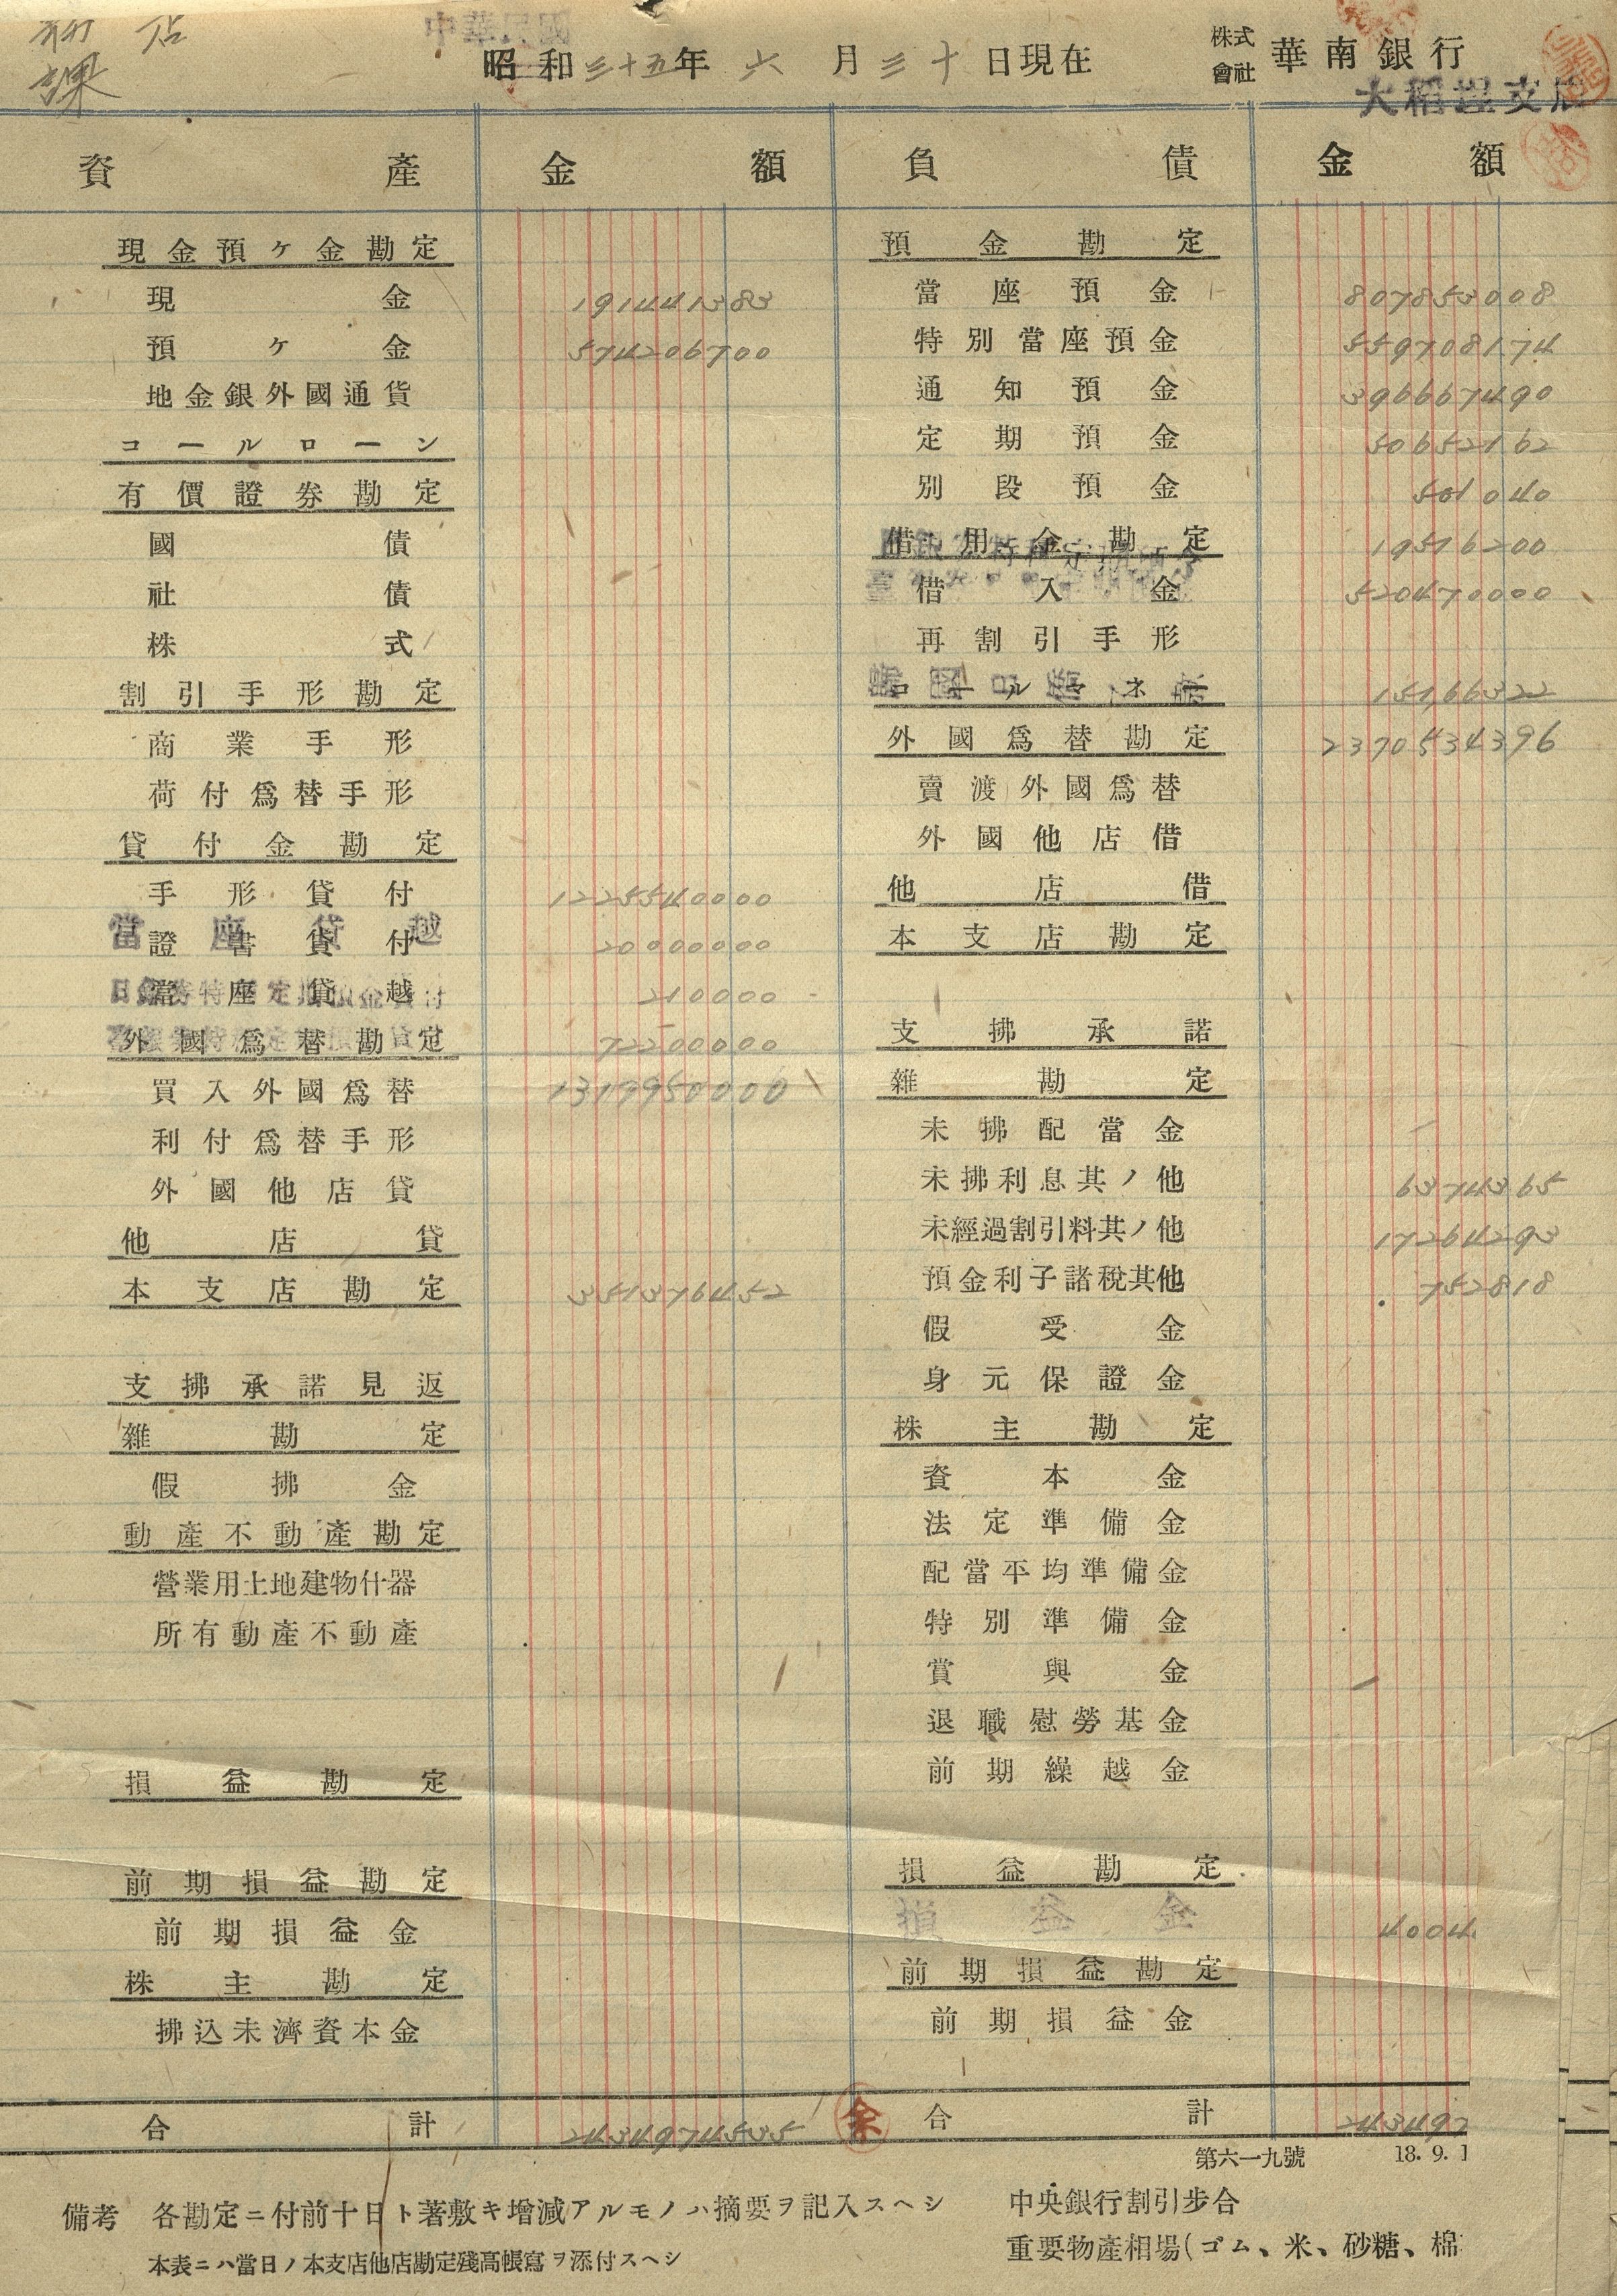 店
課
中華民國
昭和三十五年六月三十日現在
株式會社 華南銀行
大稻埕支店
資產 金額 負債 金額
現金預ケ金勘定 預金勘定
現金 191441383 當座預金 807853008
預ケ金 574206700 特別當座預金 559708174
地金銀外國通貨 通知預金 396667490
コールローン 定期預金 50652162
有價證券勘定 別段預金 501040
國債 借用金勘定 19576200
社債 借入金 520470000
株式 再割引手形
割引手形勘定 コールマネー 15166322
商業手形 外國爲替勘定 2370534396
荷付爲替手形 賣渡外國爲替
貸付金勘定 外國他店借
手形貸付 1225540000 他店借
當座貸越
證書貸付 20000000 本支店勘定
當座貸越 210000
外國爲替勘定 72200000 支拂承諾
買入外國爲替 1317950000 雜勘定
利付爲替手形 未拂配當金
外國他店貸 未拂利息其ノ他 6374365
他店貸 未經過割引料其ノ他 17264293
本支店勘定 351376452 預金利子諸稅其他 752818
假受金
支拂承諾見返 身元保證金
雜勘定 株主勘定
假拂金 資本金
動產不動產勘定 法定準備金
營業用土地建物什器 配當平均準備金
所有動產不動產 特別準備金
賞與金
退職慰勞基金
損益勘定 前期繰越金
前期損益勘定 損益勘定
前期損益金 損益金 4004
株主勘定 前期損益勘定
拂込未濟資本金 前期損益金
合計 2434974535 余 合計 243497
第六一九號 18.9.1
備考 各勘定ニ付前十日ト著敷キ增減アルモノハ摘要ヲ記入スヘシ 中央銀行割引步合
本表ニハ當日ノ本支店他店勘定殘高帳寫ヲ添付スヘシ 重要物產相場(ゴム、米、砂糖、棉